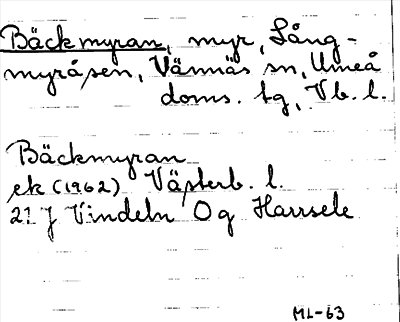 Bäckmyran, myr, Lång-
myråsen, Vännäs sn, Umeå
doms. tg, Vb. l.
Bäckmyran
ek (1962) Västerb. l.
21 J Vindeln Og Harrsele
ML-63